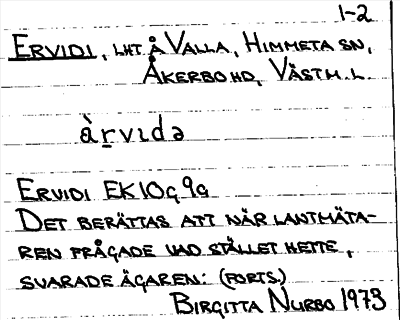 1-2
ERVIDI, LHT Å VALLA, HIMMETA SN,
ÅKERBO HD, VÄSTM. L.
àrvıdə
ERVIDI EK 10g 9a
DET BERÄTTAS ATT NÄR LANTMÄTA-
REN FRÅGADE VAD STÄLLET HETTE,
SVARADE ÄGAREN: (FORTS.)
BIRGITTA NURBO 1973